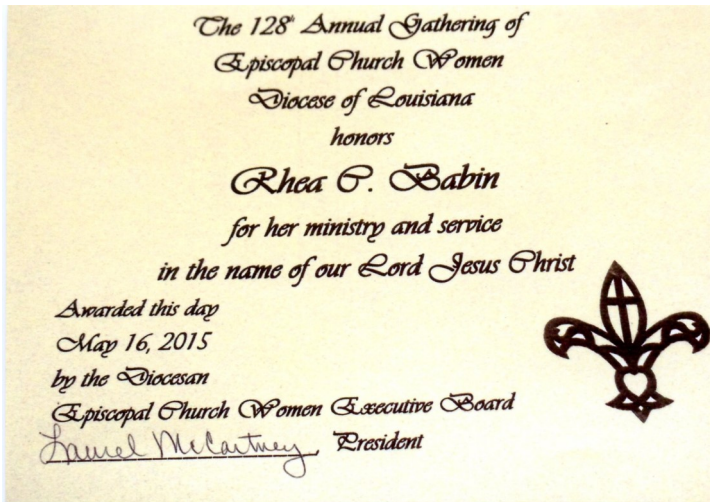 The 128th Annual Gathering of
Episcopal Church Women
Diocese of Louisiana
honors
Rhea C. Babin
for her ministry and service
in the name of our Lord Jesus Christ
Awarded this day
May 16, 2015
by the Diocesan
Episcopal Church Women Executive Board
Laurel McCartney, President